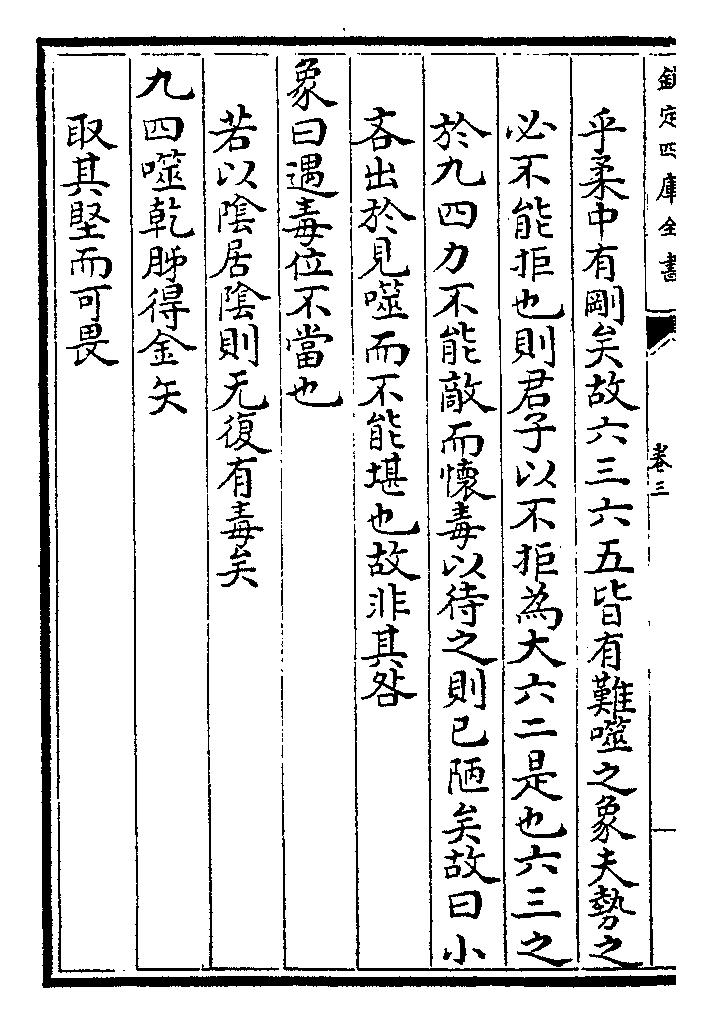 欽定四庫全書
卷三
乎柔中有剛矣故六三六五皆有難噬之象夫勢之
必不能拒也則君子以不拒為大六二是也六三之
於九四力不能敵而懷毒以待之則已陋矣故曰小
吝出於見噬而不能堪也故非其咎
象曰遇毒位不當也
若以陰居陰則无復有毒矣
九四噬乾胏得金矢
取其堅而可畏